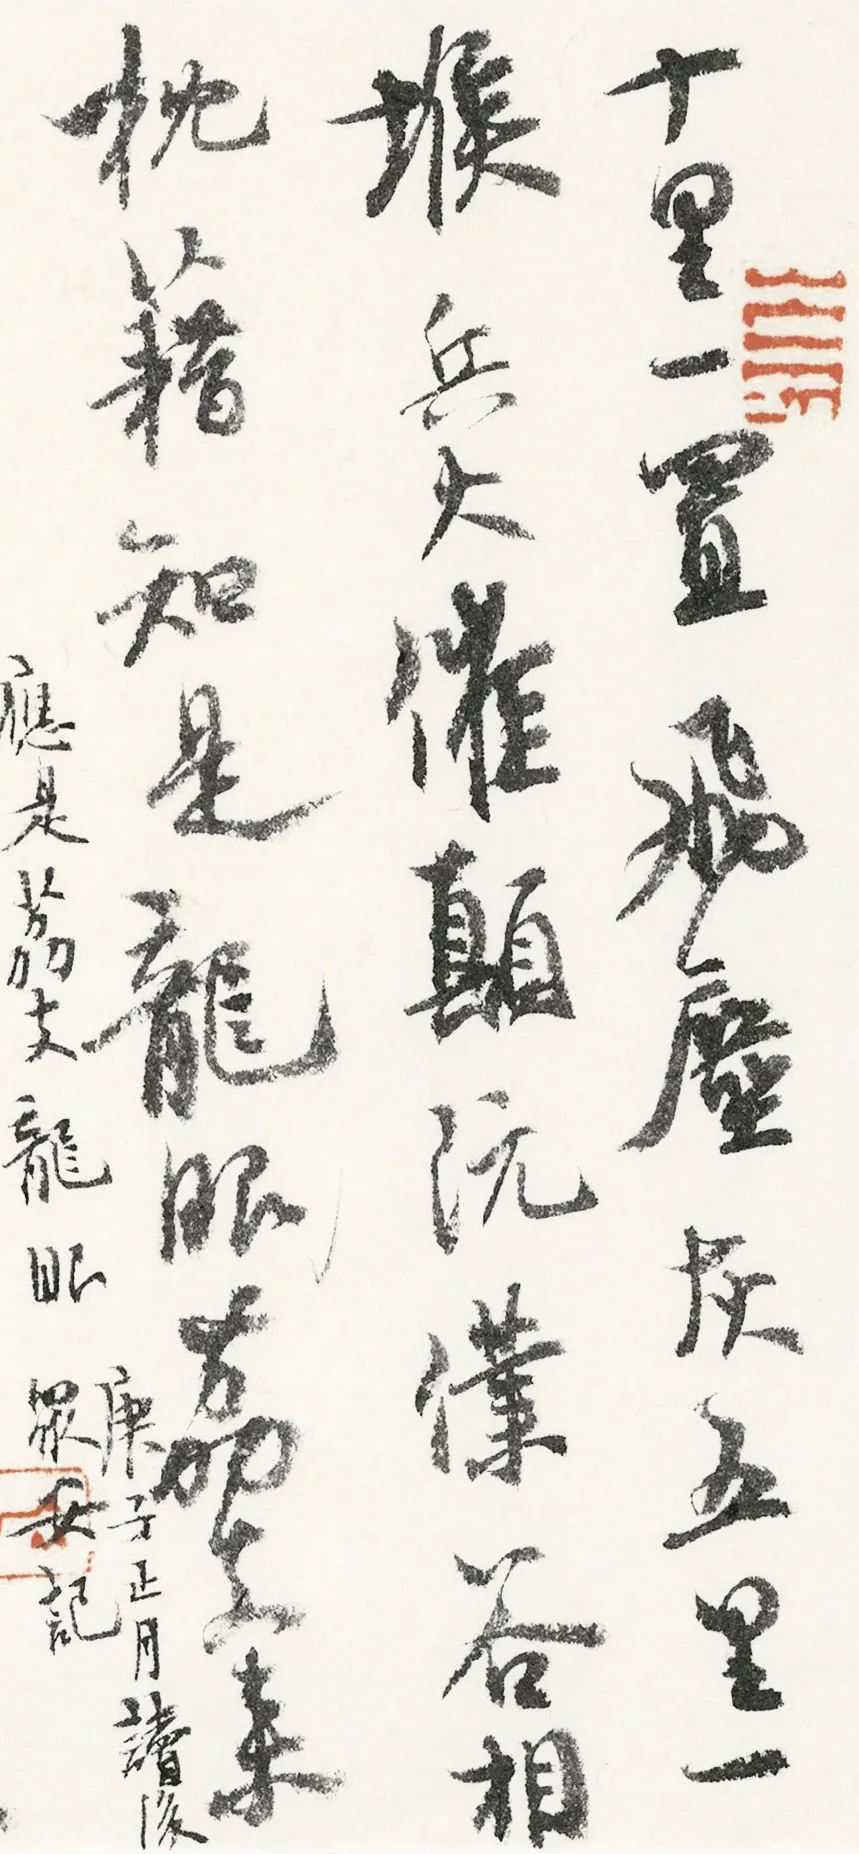 十里一置飛塵灰五里一
堠兵火催顛阬僕谷相
枕藉知是龍眼荔支来
應是荔支龍眼
庚子正月讀後
眾安記